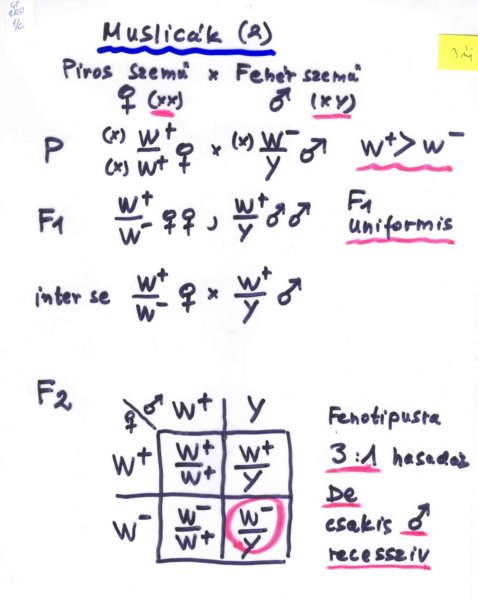 Muslicák (2)
Piros szemű x Fehér szemű
♀ (xx) ♂ (xy)
P (x) w⁺ / (x) w⁺ ♀ x (x) w⁻ / y ♂ w⁺ > w⁻
F1 w⁺ / w⁻ ♀♀, w⁺ / y ♂♂ F1
uniformis
inter se w⁺ / w⁻ ♀ x w⁺ / y ♂
F2
♀ \ ♂ w⁺ y
w⁺ w⁺ / w⁺ w⁺ / y
w⁻ w⁻ / w⁺ w⁻ / y
Fenotipusra
3:1 hasadás
De
csakis ♂
recessziv